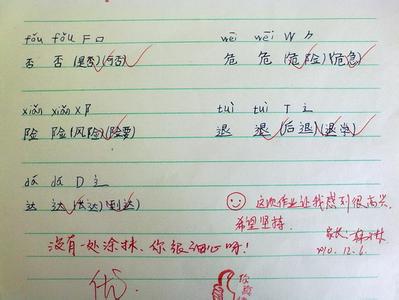 fǒu fǒu F 口 wēi wēi W ⺈
否 否 (是否)(可否) 危 危 (危险)(危急)
xiǎn xiǎn X 阝 tuì tuì T 辶
险 险 (风险)(险要) 退 退 (后退)(退学)
dá dá D 辶
达 达 (到达)
这次作业让我感到很高兴,
希望坚持.
家长:
没有一处涂抹,你很细心呀!
12.6.
优